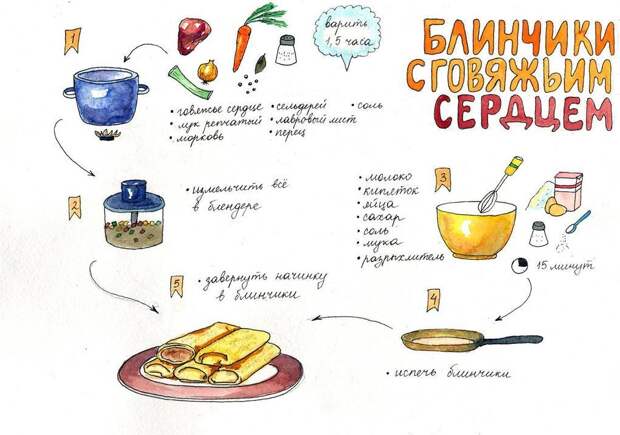 БЛИНЧИКИ
С ГОВЯЖЬИМ
СЕРДЦЕМ
1
варить
1,5 часа
• говяжье сердце
• лук репчатый
• морковь
• сельдерей
• лавровый лист
• перец
• соль
2
• измельчить всё
в блендере
3
• молоко
• кипяток
• яйца
• сахар
• соль
• мука
• разрыхлитель
15 минут
4
• испечь блинчики
5
• завернуть начинку
в блинчики